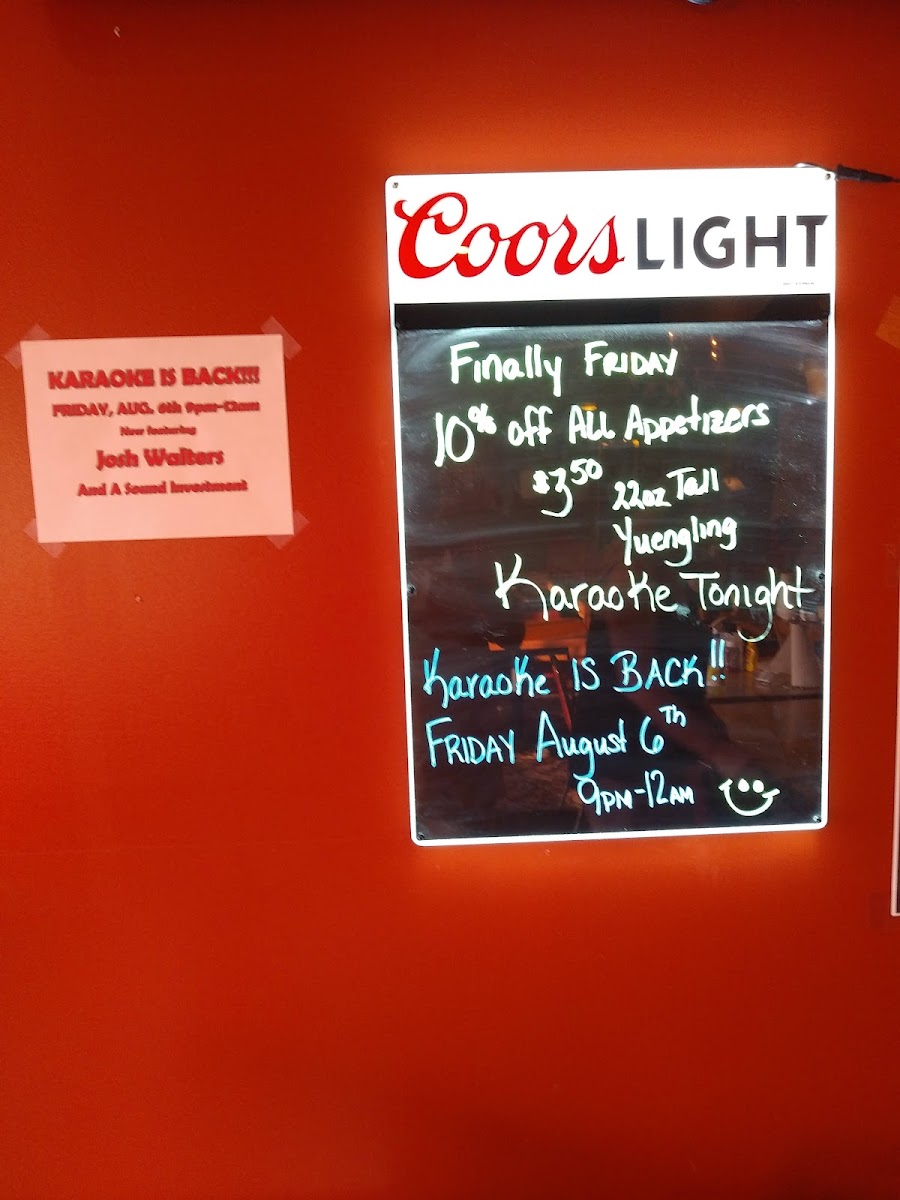 KARAOKE IS BACK!!!
FRIDAY, AUG. 6th 9pm-12am
Now featuring
Josh Walters
And A Sound Investment
Coors LIGHT
Finally FRIDAY
10% off All Appetizers
$3.50 22oz Tall
Yuengling
Karaoke Tonight
Karaoke IS BACK!!
FRIDAY August 6Th
9PM-12AM